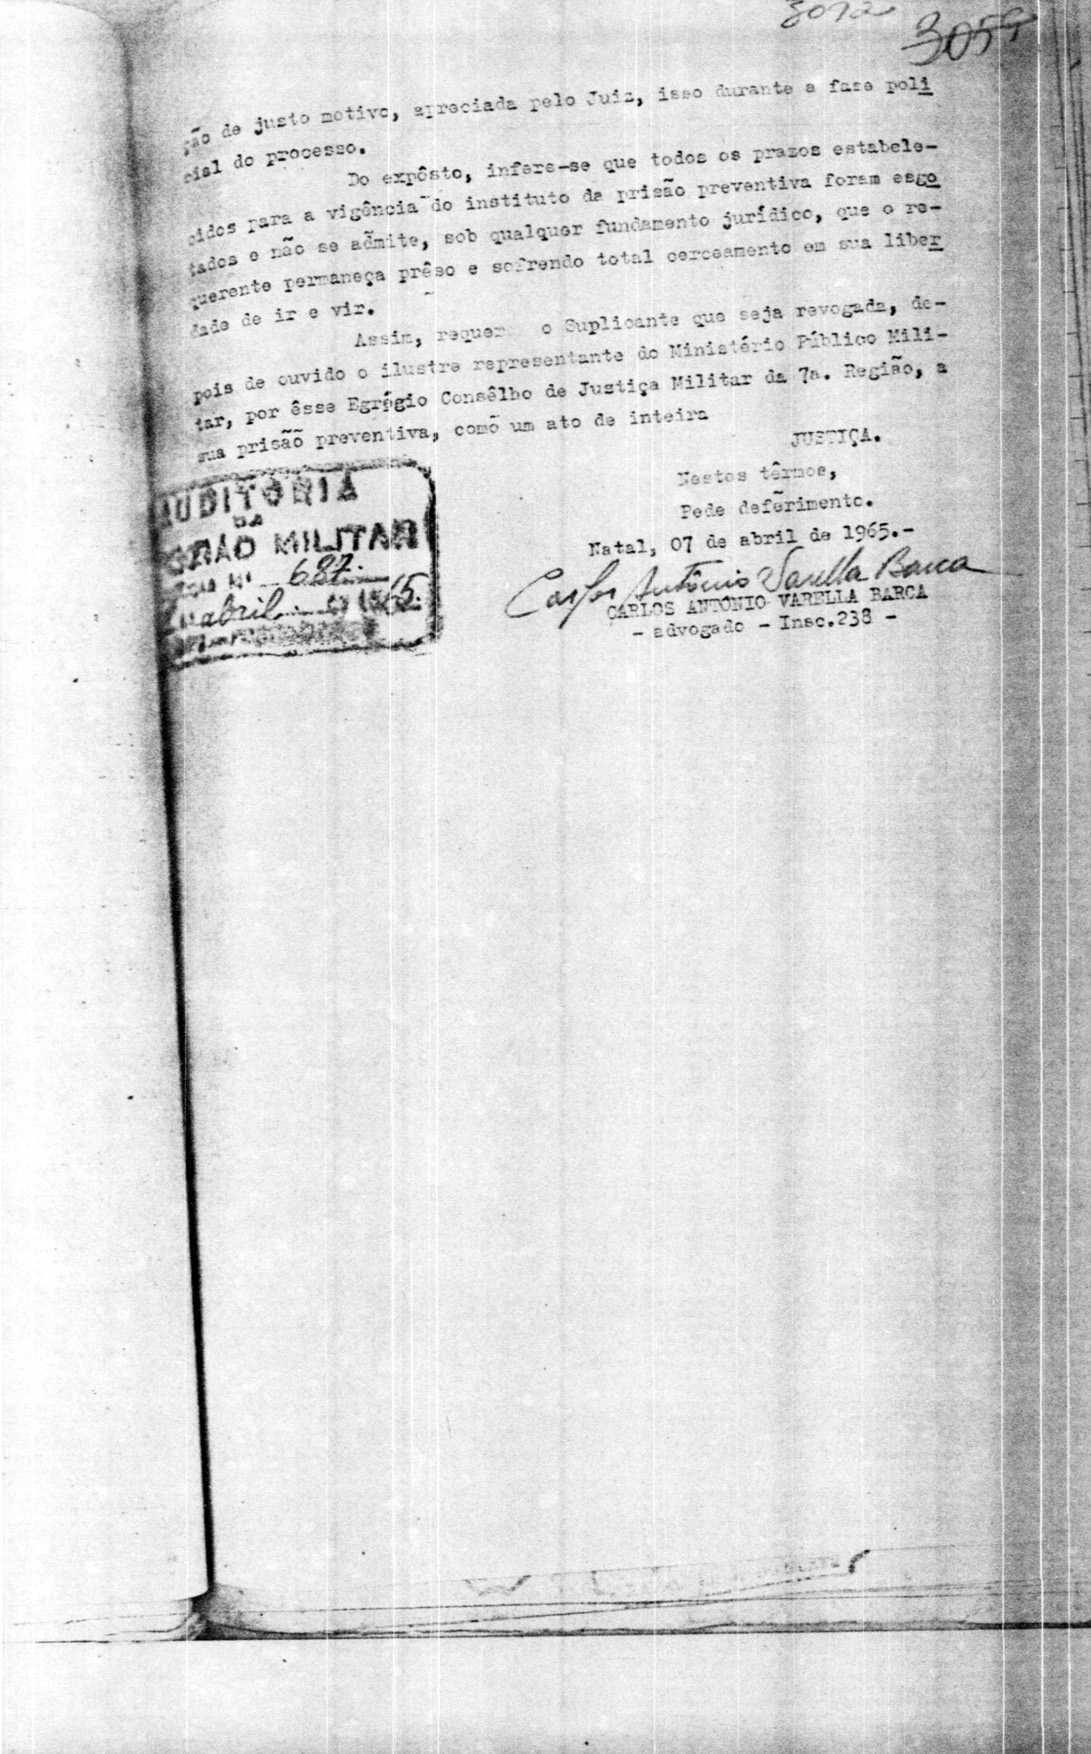 3092
3059
ção de justo motivo, apreciada pelo Juiz, isso durante a fase poli
cial do processo.
Do expôsto, infere-se que todos os prazos estabele-
cidos para a vigência do instituto da prisão preventiva foram esgo
tados e não se admite, sob qualquer fundamento jurídico, que o re-
querente permaneça prêso e sofrendo total cerceamento em sua liber
dade de ir e vir.
Assim, requer o Suplicante que seja revogada, de-
pois de ouvido o ilustre representante do Ministério Público Mili-
tar, por êsse Egrégio Consêlho de Justiça Militar da 7a. Região, a
sua prisão preventiva, como um ato de inteira
JUSTIÇA.
Nestes têrmos,
Pede deferimento.
Natal, 07 de abril de 1965.-
Carlos Antônio Varella Barca
CARLOS ANTONIO VARELLA BARCA
- advogado - Insc.238 -
AUDITORIA
DA
REGIÃO MILITAR
687
abril 1965